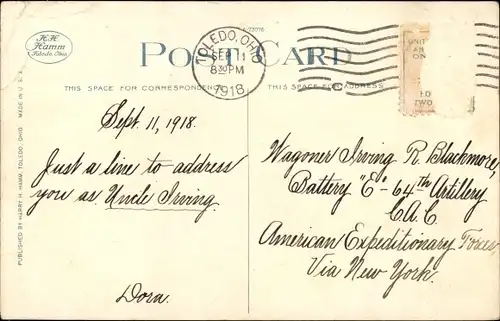 H.H.
Hamm
Toledo, Ohio.
POST CARD
TOLEDO, OHIO
SEP 11
8 30 PM
1918
THIS SPACE FOR CORRESPONDENCE
THIS SPACE FOR ADDRESS
PUBLISHED BY HARRY H. HAMM, TOLEDO, OHIO
MADE IN U.S.A.
Sept. 11, 1918.
Just a line to address
you as Uncle Irving.
Dora.
Wagoner Irving R. Blackmore,
Battery "E" - 64th Artillery
C.A.C.
American Expeditionary Forces,
Via New York.